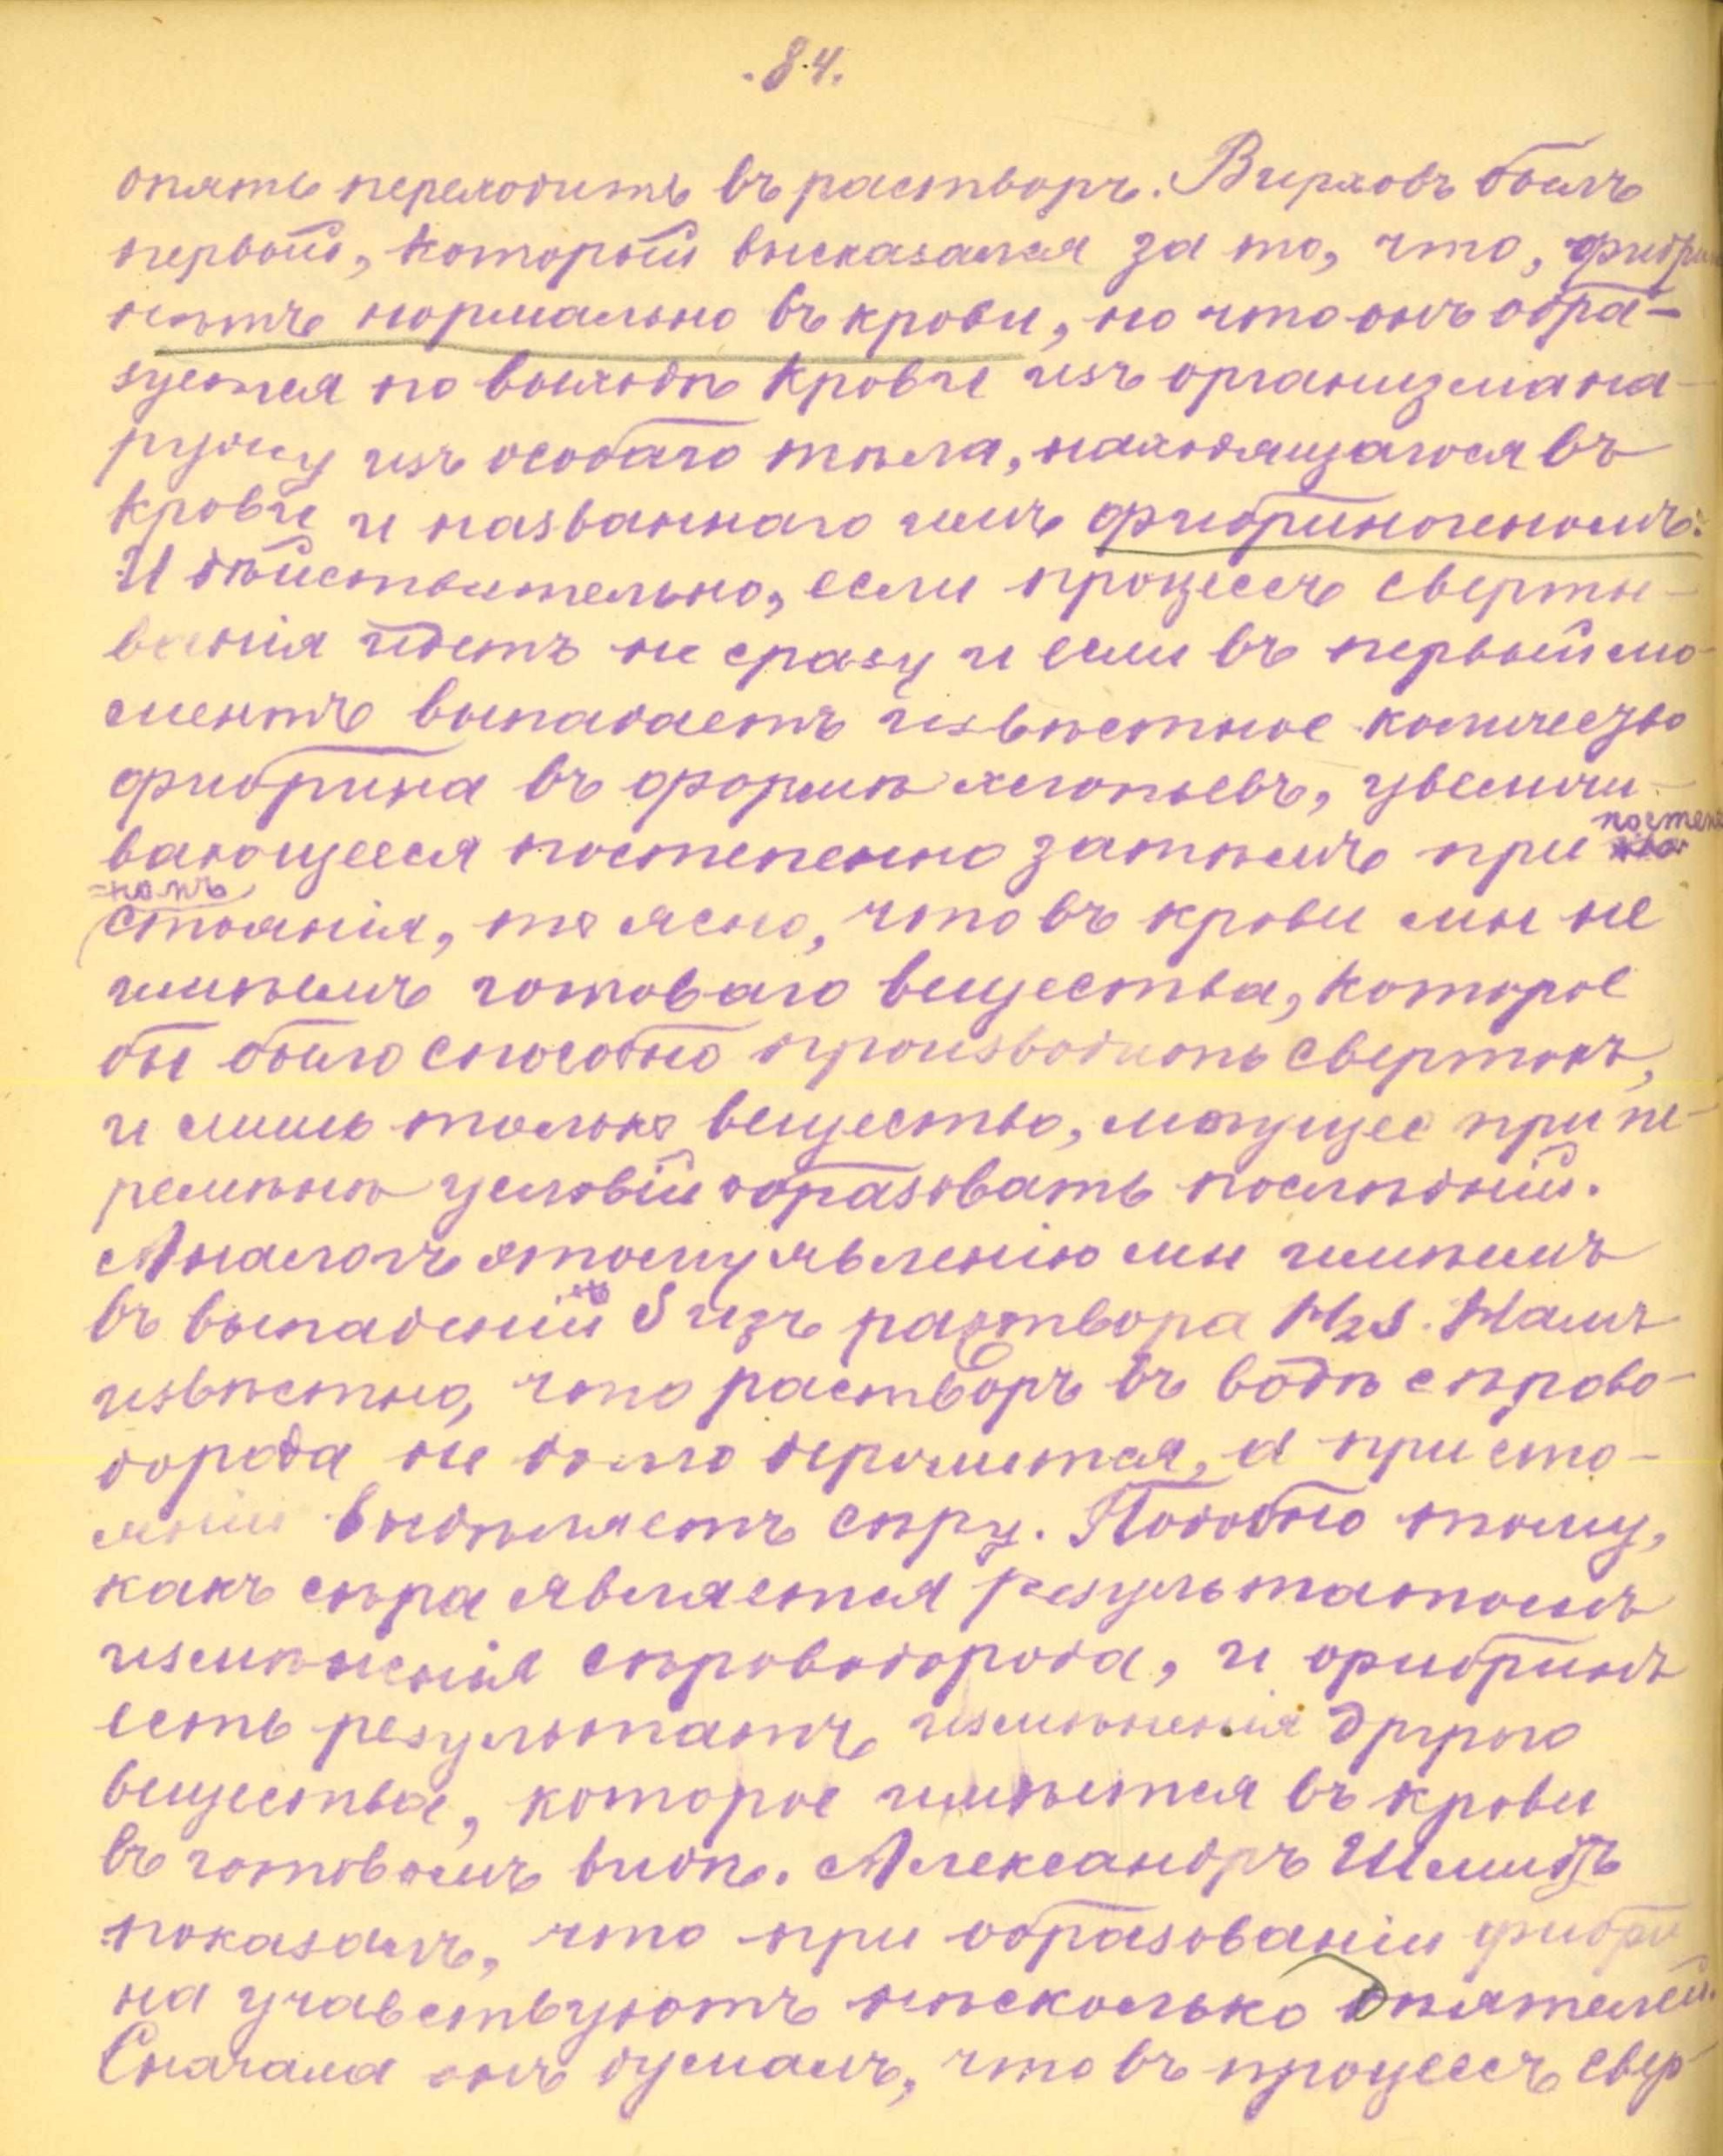 .84.
опять переходитъ въ растворъ. Вирховъ былъ
первый, который высказался за то, что, фибри
нетъ нормально въ крови, но что онъ обра-
зуется по выходѣ крови изъ организма на-
ружу изъ особаго тѣла, находящагося въ
крови и названнаго имъ фибриногеномъ.
И дѣйствительно, если процессъ сверты-
ванія идетъ не сразу и если въ первый мо-
ментъ выпадаетъ извѣстное количество
фибрина въ формѣ хлопьевъ, увеличи-
вающееся постепенно затѣмъ при
постепен
=номъ
стоянія, то ясно, что въ крови мы не
имѣемъ готоваго вещества, которое
бы было способно производить свертокъ,
и лишь только вещество, могущее при пе-
ремѣнѣ условій образовать послѣдній.
Аналогъ этому явленію мы имѣемъ
въ выпаденіи S изъ раствора H2S. Намъ
извѣстно, что растворъ въ водѣ сѣрово-
дорода не долго держится, а при сто-
яніи выдѣляетъ сѣру. Подобно тому,
какъ сѣра является результатомъ
измѣненія сѣроводорода, и фибринъ
есть результатъ измѣненія другого
вещества, которое имѣется въ крови
въ готовомъ видѣ. Александръ Шмидтъ
показалъ, что при образованіи фибри
на учавствуютъ нѣсколько дѣятелей.
Сначала онъ думалъ, что въ процессъ свер-